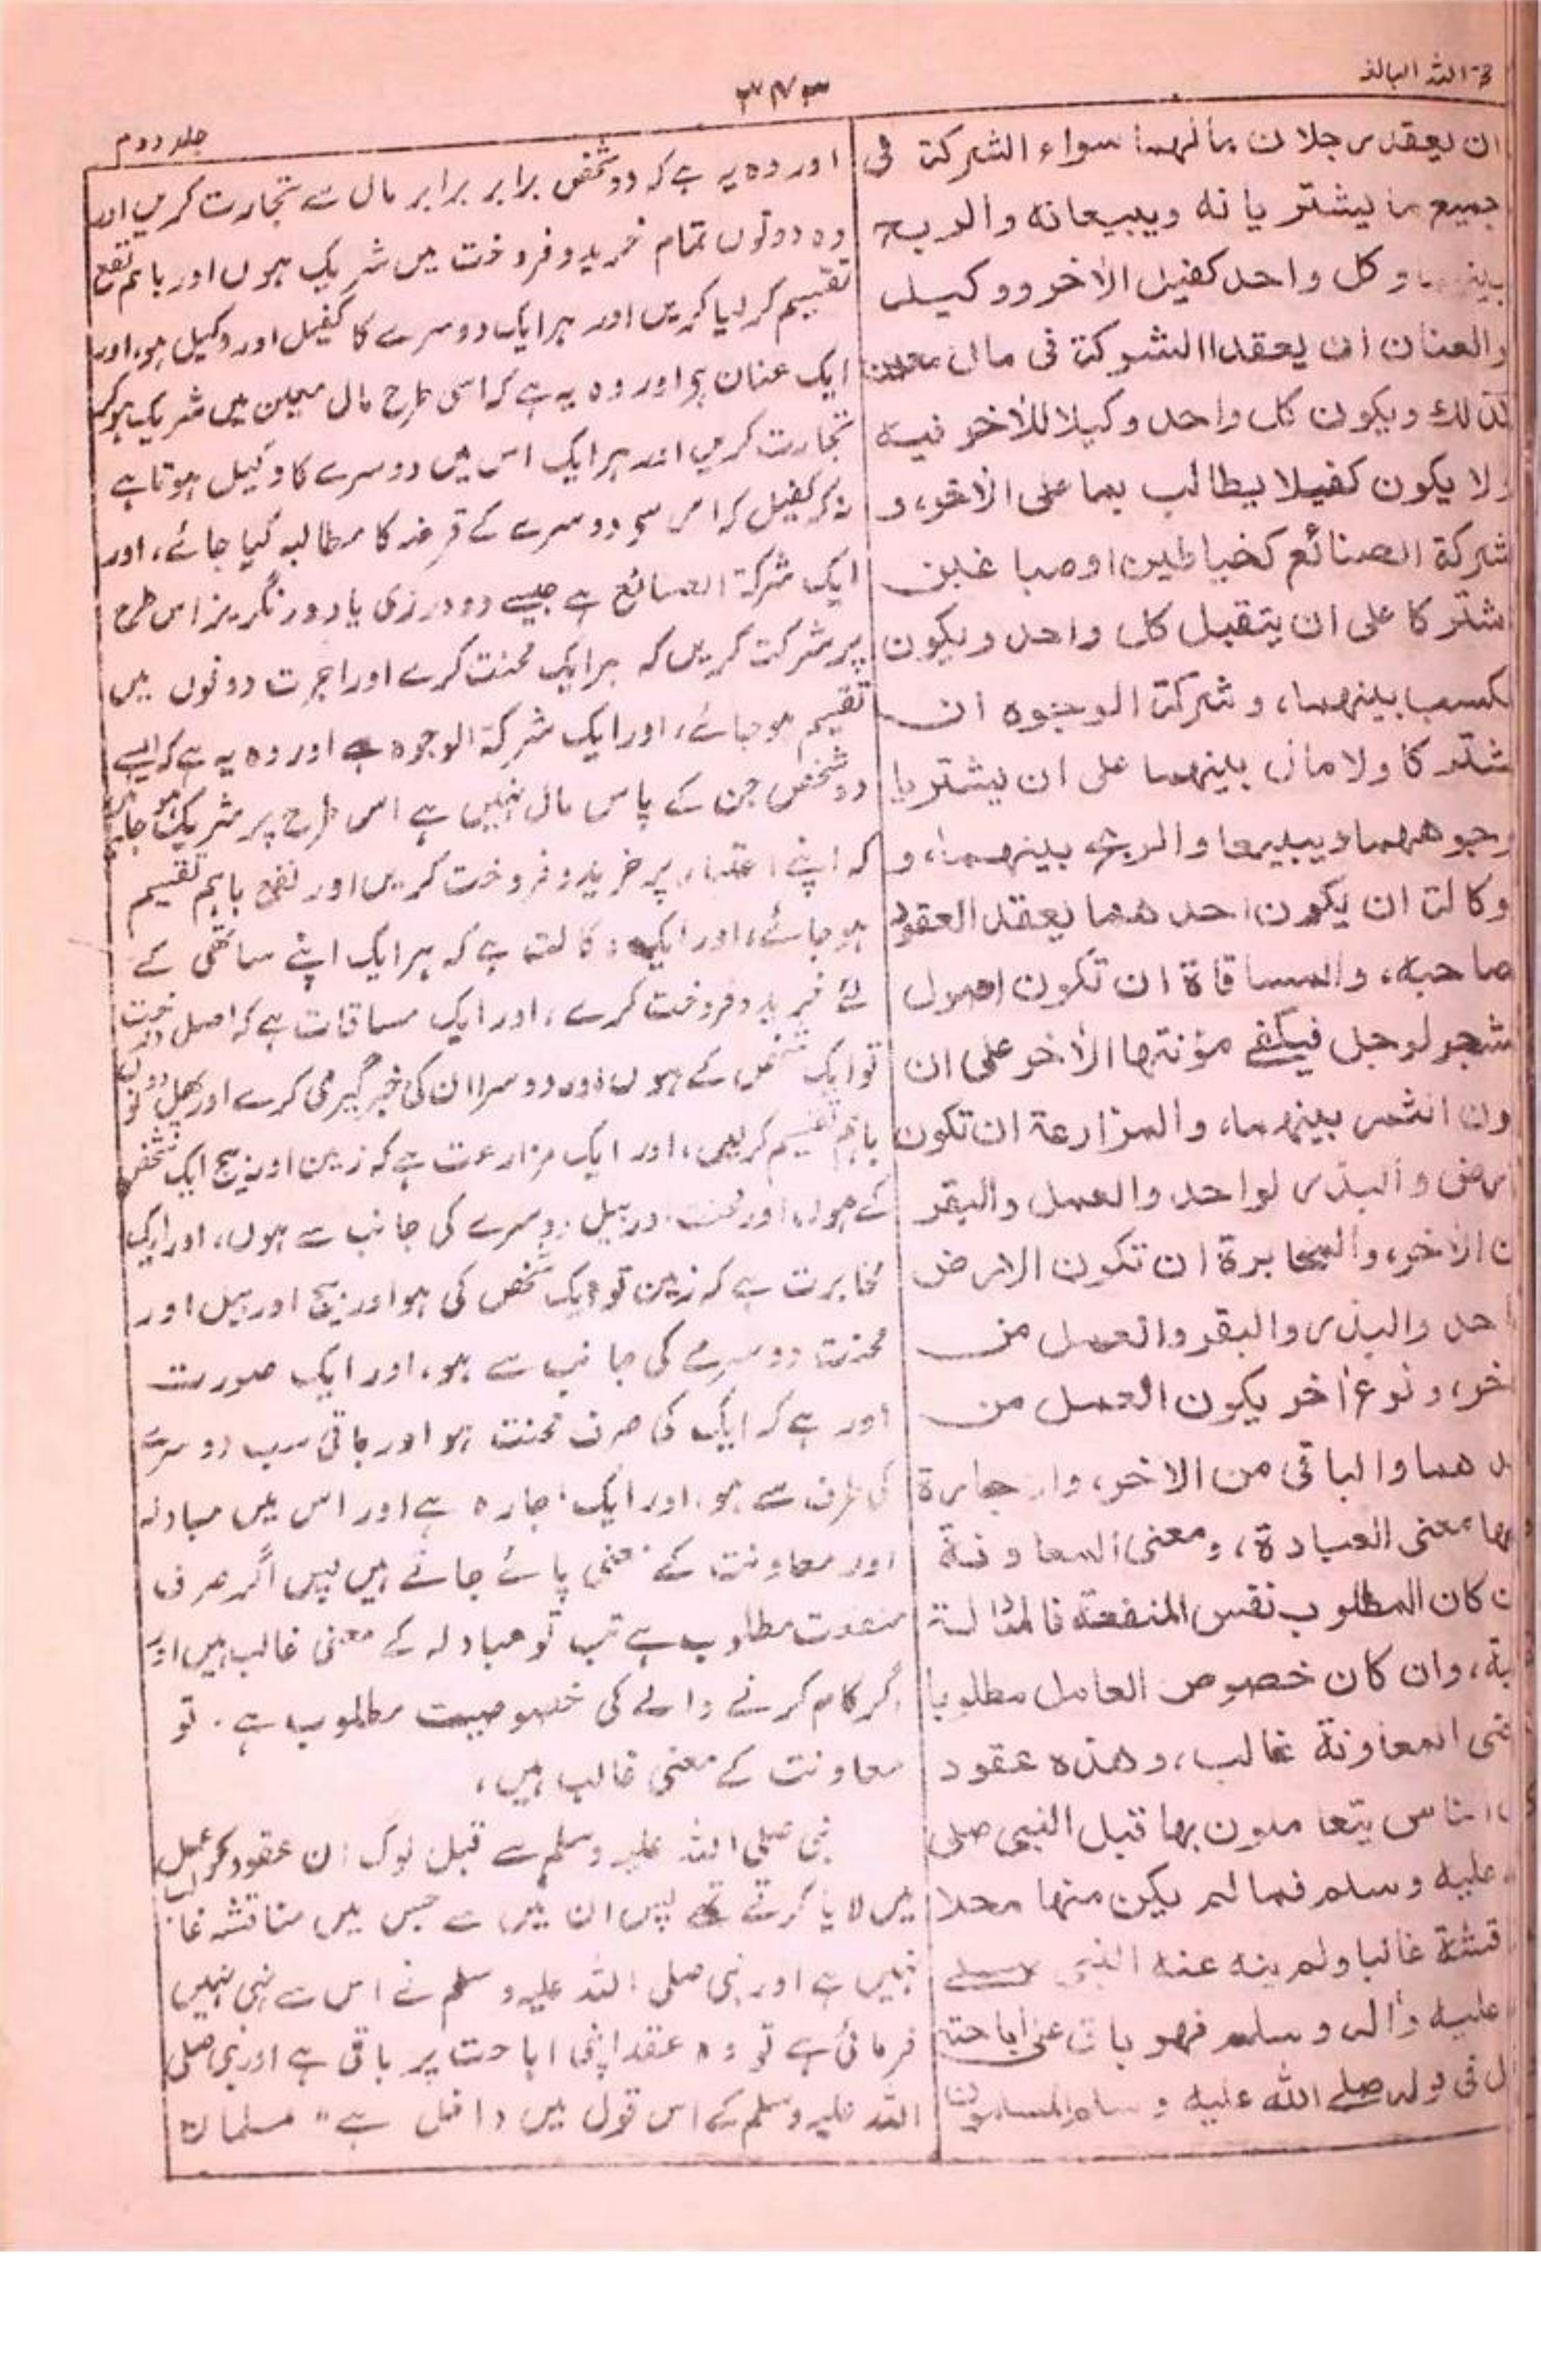 حجۃ اللہ البالغہ
۳۴۳
جلد دوم
ان یعقد رجلان بمالهما سواء الشرکة فی
جمیع ما یشتریانه ویبیعانه والربح
بینهما وکل واحد کفیل الاٰخر ووکیله
والعنان ان یعقدا الشرکة فی مال معین
کذلك ویکون کل واحد وکیلا للاٰخر فیه
ولا یکون کفیلا یطالب بما علی الاٰخر، و
شرکة الصنائع کخیاطین او صباغین
اشترکا علی ان یتقبل کل واحد ویکون
لکسب بینهما، وشرکة الوجوه ان
شترکا ولا مال بینهما علی ان یشتریا
وجوههما ویبیعا والربح بینهما، و
وکالة ان یکون احدهما یعقد العقود
صاحبه، والمساقاة ان تکون اصول
شجر لرجل فیکفی مؤنتها الاٰخر علی ان
ون الثمر بینهما، والمزارعة ان تکون
ارض والبذر لواحد والعمل والبقر
ن الاٰخر، والمخابرة ان تکون الارض
احد والبذر والبقر والعمل من
خر، ونوع اٰخر یکون العمل من
دهما والباقی من الاٰخر، والاجارة
یها معنی العبادة، ومعنی المعاونة
ن کان المطلوب نفس المنفعة فالمبادلة
بة، وان کان خصوص العامل مطلوبا
نی المعاونة غالب، وهذه عقود
ن الناس یتعاملون بها قبل النبی صلی
علیه وسلم فما لم یکن منها محلا
اقشة غالبا ولم ینه عنه النبی صلی
علیه واٰله وسلم فهو باق علی اباحته
ل فی قوله صلی الله علیه وسلم المسلمون
اور وہ یہ ہے کہ دو شخص برابر برابر مال سے تجارت کریں اور
وہ دونوں تمام خرید و فروخت میں شریک ہوں اور باہم نفع
تقسیم کر لیا کریں اور ہر ایک دوسرے کا کفیل اور وکیل ہو، اور
ایک عنان ہے اور وہ یہ ہے کہ اسی طرح مال معین میں شریک ہو کر
تجارت کریں اور ہر ایک اس میں دوسرے کا وکیل ہوتا ہے
نہ کہ کفیل کہ اس سے دوسرے کے قرضہ کا مطالبہ کیا جائے، اور
ایک شرکۃ الصنائع ہے جیسے دو درزی یا دو رنگریز اس طرح
پر شرکت کریں کہ ہر ایک محنت کرے اور اجرت دونوں میں
تقسیم ہو جائے، اور ایک شرکۃ الوجوہ ہے اور وہ یہ ہے کہ ایسے
دو شخص جن کے پاس مال نہیں ہے اس طرح پر شریک ہو جائیں
کہ اپنے اعتبار پر خرید و فروخت کریں اور نفع باہم تقسیم
ہو جائے، اور ایک وکالت ہے کہ ہر ایک اپنے ساتھی کے
لئے خرید و فروخت کرے، اور ایک مساقات ہے کہ اصل درخت
تو ایک شخص کے ہوں اور دوسرا ان کی خبر گیری کرے اور پھل دونوں
باہم تقسیم کر لیں، اور ایک مزارعت ہے کہ زمین اور بیج ایک شخص
کے ہوں، اور محنت اور بیل دوسرے کی جانب سے ہوں، اور ایک
مخابرت ہے کہ زمین تو ایک شخص کی ہو اور بیج اور بیل اور
محنت دوسرے کی جانب سے ہو، اور ایک صورت
اور ہے کہ ایک کی صرف محنت ہو اور باقی سب دوسرے
کی طرف سے ہو، اور ایک اجارہ ہے اور اس میں مبادلہ
اور معاونت کے معنی پائے جاتے ہیں پس اگر صرف
منفعت مطلوب ہے تب تو مبادلہ کے معنی غالب ہیں اور
اگر کام کرنے والے کی خصوصیت مطلوب ہے۔ تو
معاونت کے معنی غالب ہیں،
نبی صلی اللہ علیہ وسلم سے قبل لوگ ان عقود کو عمل
میں لایا کرتے تھے پس ان میں سے جس میں مناقشہ غالب
نہیں ہے اور نبی صلی اللہ علیہ وسلم نے اس سے نہی نہیں
فرمائی ہے تو وہ عقد اپنی اباحت پر باقی ہے اور نبی صلی
اللہ علیہ وسلم کے اس قول میں داخل ہے "مسلمان